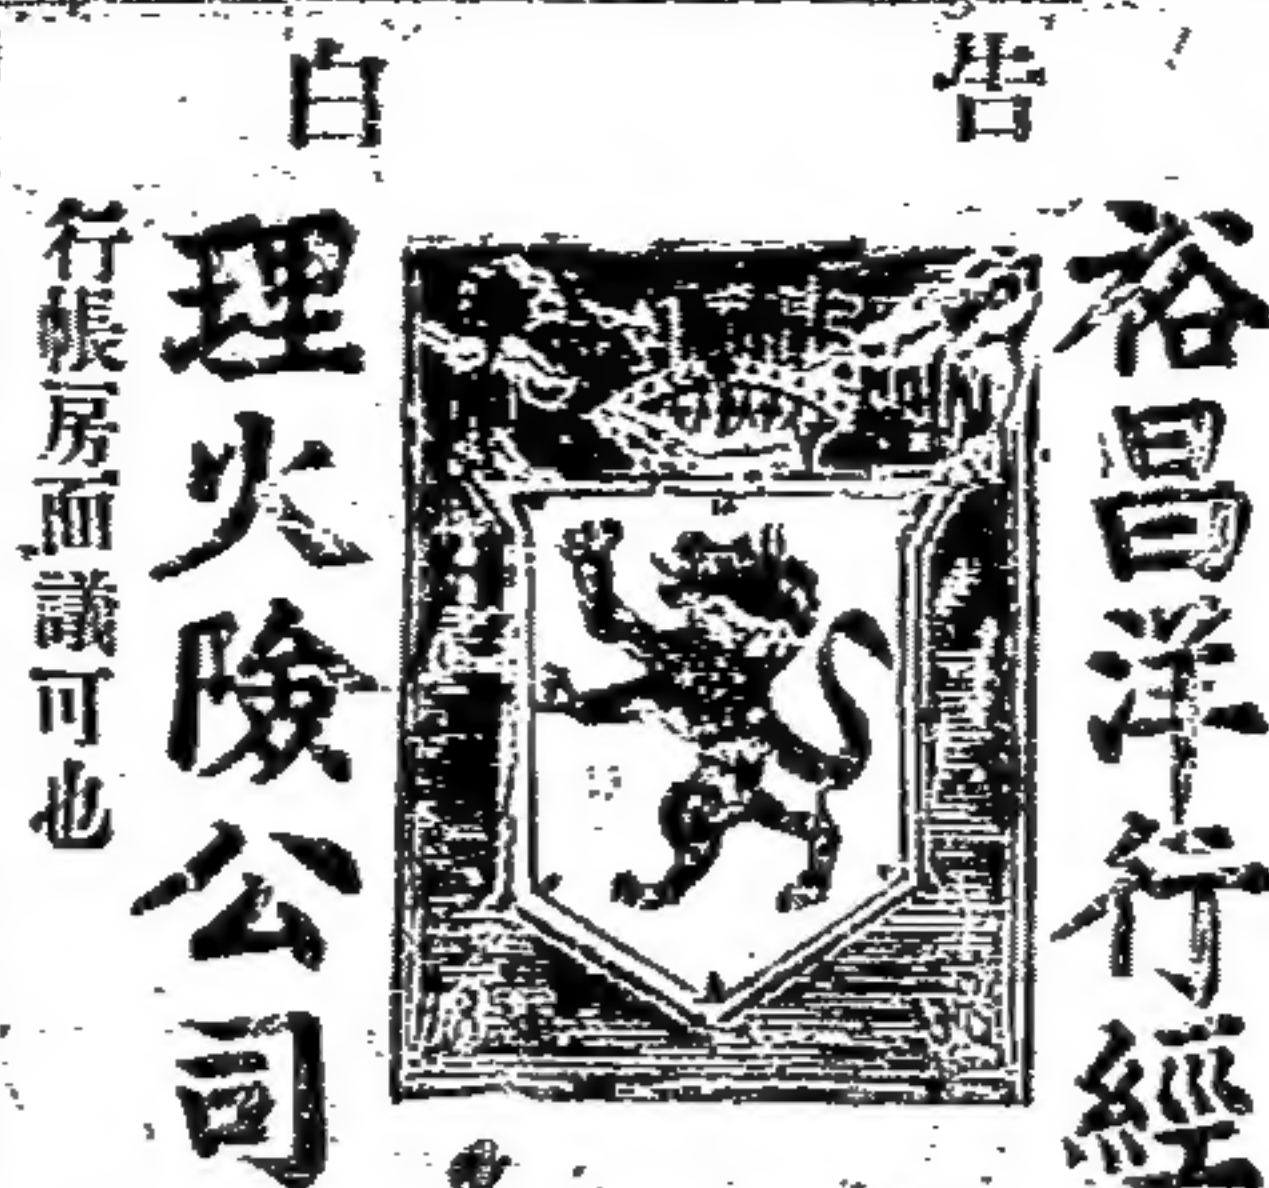 告白
裕昌洋行經
理火險公司
行帳房面議可也